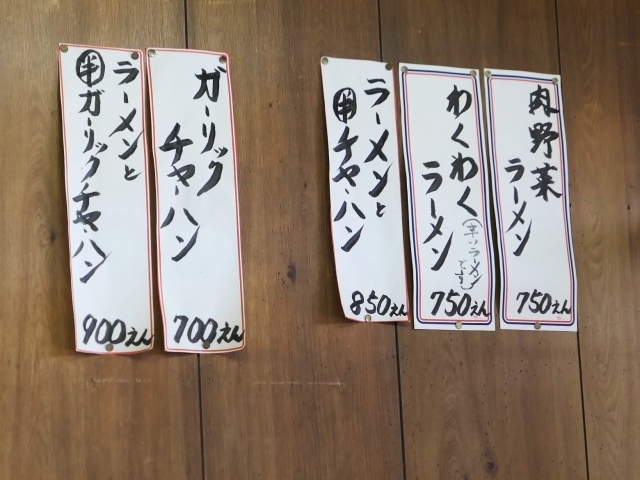 肉野菜
ラーメン
750えん
わくわく
ラーメン
(辛いラーメン
です)
750えん
ラーメンと
半チャーハン
850えん
ガーリック
チャーハン
700えん
ラーメンと
半ガーリックチャーハン
900えん